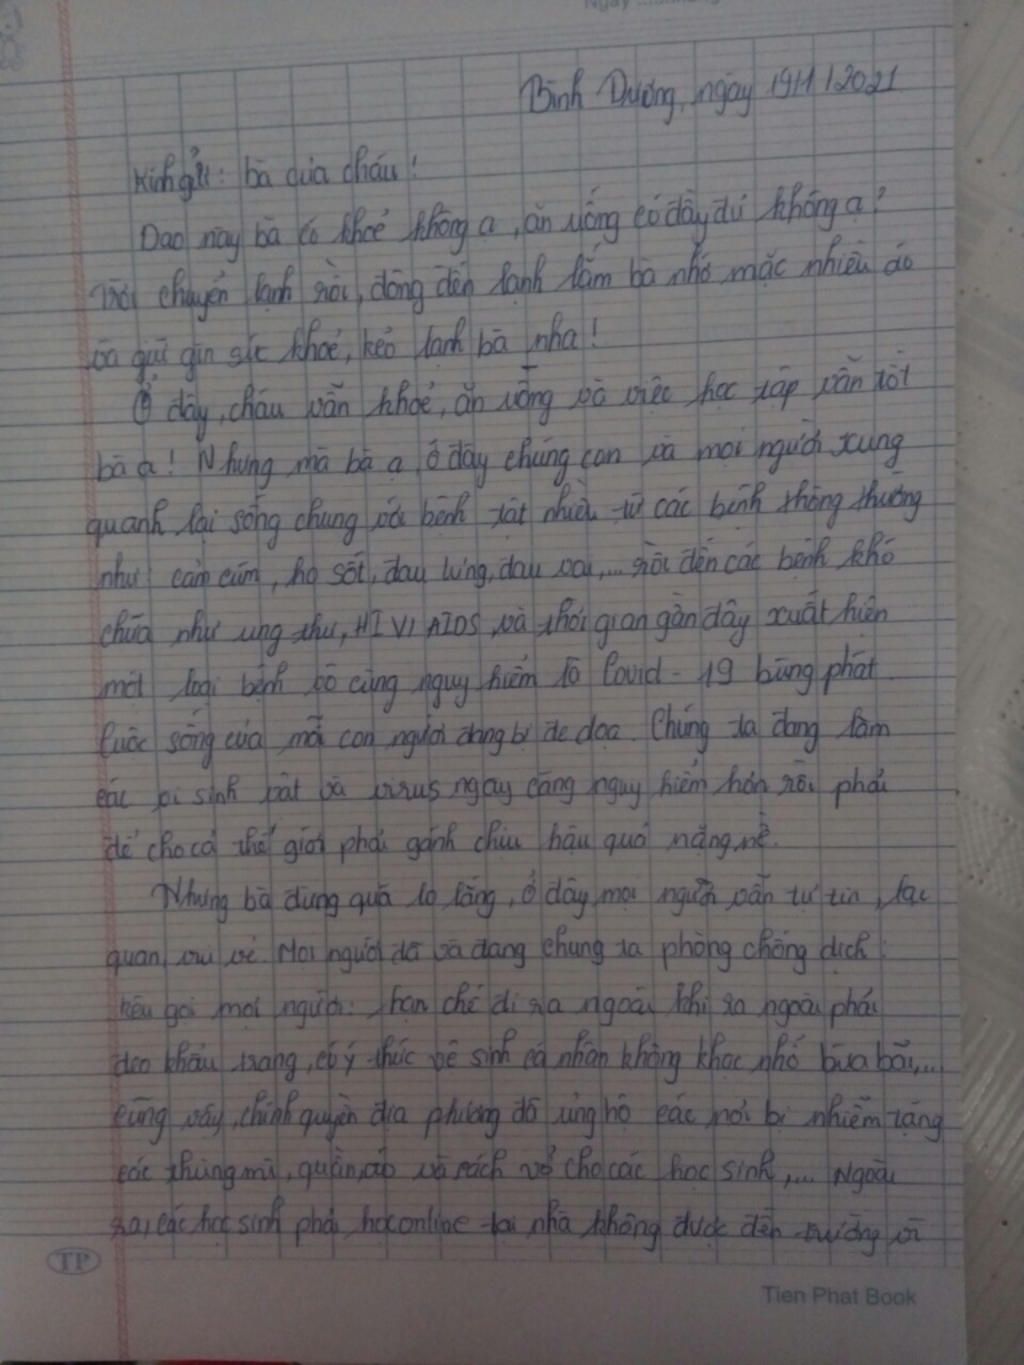 Bình Dương, ngày 19/1/2021
Kính gửi: bà của cháu!
Dạo này bà có khoẻ không ạ, ăn uống có đầy đủ không ạ?
Trời chuyển lạnh rồi, đông đến lạnh lắm bà nhớ mặc nhiều áo
và giữ gìn sức khoẻ, kẻo lạnh bà nha!
Ở đây, cháu vẫn khoẻ, ăn uống và việc học tập vẫn tốt
bà ạ! Nhưng mà bà ạ, ở đây chúng con và mọi người xung
quanh lại sống chung với bệnh tật nhiều từ các bệnh thông thường
như cảm cúm, ho sốt, đau lưng, đau vai,... rồi đến các bệnh khó
chữa như ung thư, HIV/AIDS, và thời gian gần đây xuất hiện
một loại bệnh vô cùng nguy hiểm là Covid-19 bùng phát
Cuộc sống của mỗi con người đang bị đe doạ. Chúng ta đang làm
các vi sinh vật và virus ngày càng nguy hiểm hơn rồi phải
để cho cả thế giới phải gánh chịu hậu quả nặng nề.
Nhưng bà đừng quá lo lắng, ở đây mọi người vẫn tự tin, lạc
quan, vui vẻ. Mọi người đã và đang chung ta phòng chống dịch
kêu gọi mọi người: hạn chế đi ra ngoài khi ra ngoài phải
đeo khẩu trang, có ý thức vệ sinh cá nhân không khạc nhổ bừa bãi,...
cũng vậy, chính quyền địa phương đã ủng hộ các nơi bị nhiễm tặng
các thùng mì, quần áo và sách vở cho các học sinh,... Ngoài
ra, các học sinh phải học online tại nhà không được đến trường vì
TP
Tien Phat Book